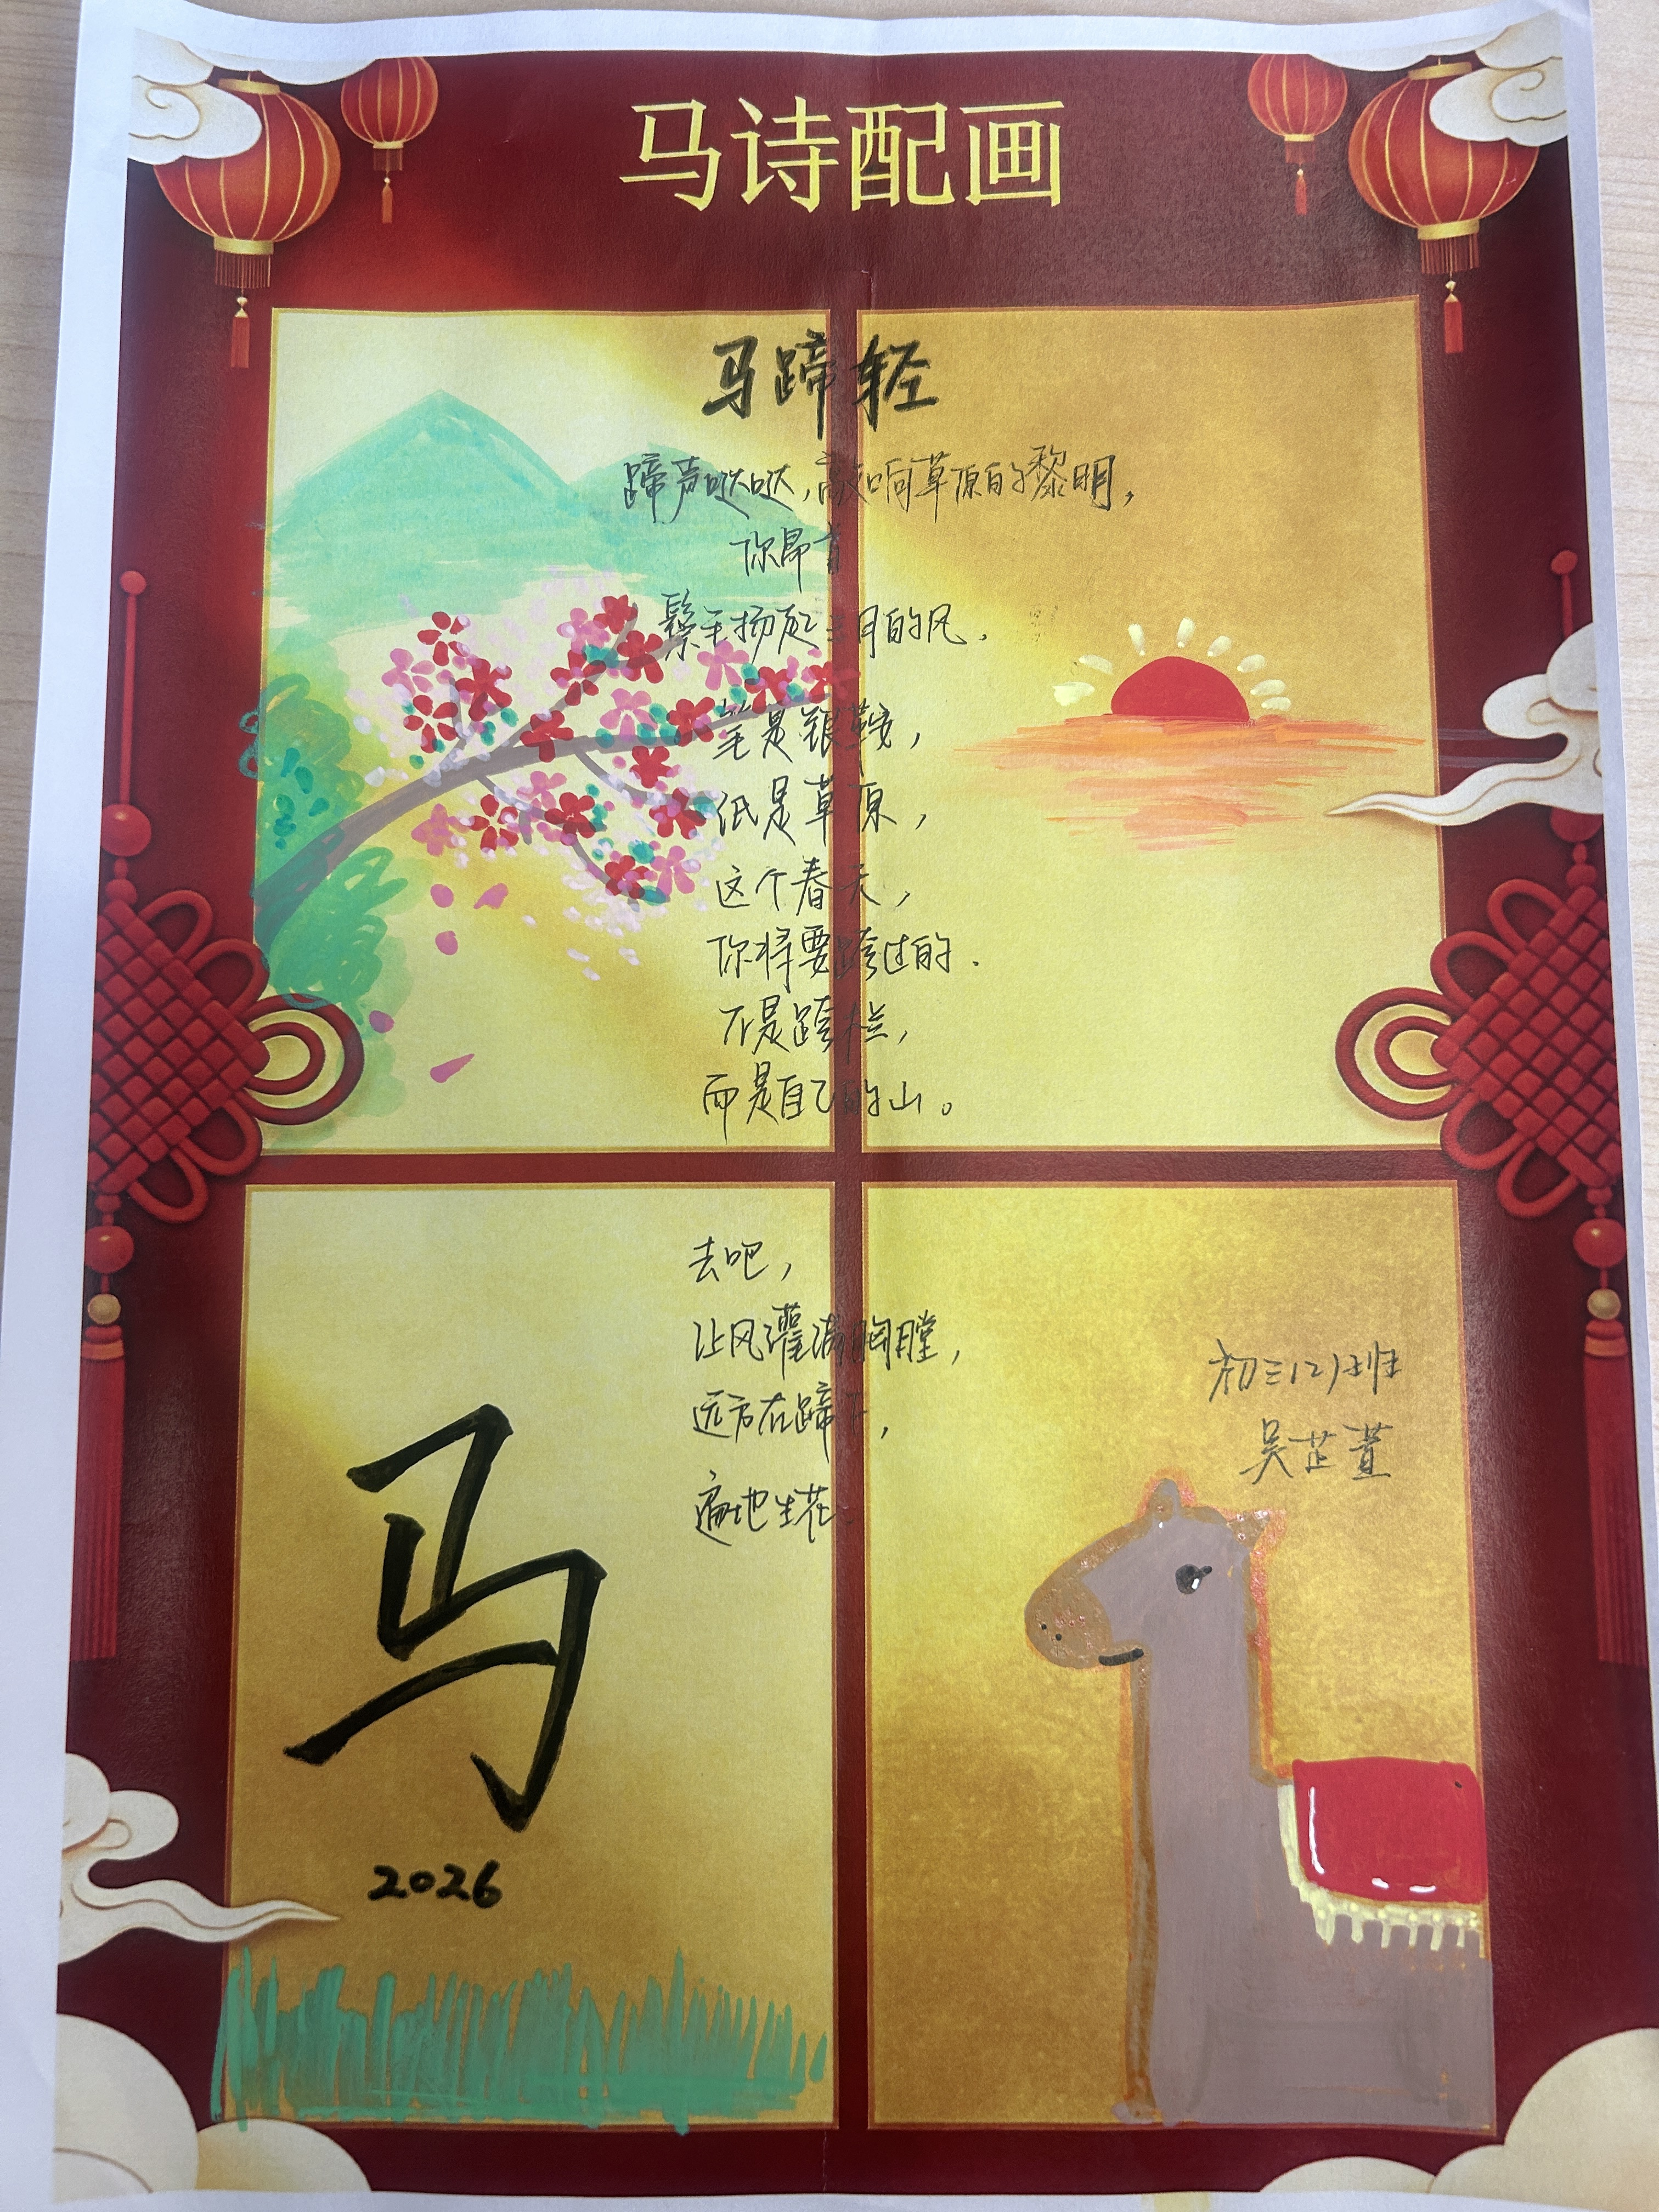 马诗配画
马蹄轻
蹄声哒哒,敲响草原的黎明,
你昂首
鬃毛扬起三月的风.
笔是银鞍,
纸是草原,
这个春天,
你将要跨过的.
不是跨栏,
而是自己的山。
去吧,
让风灌满胸膛,
远方在蹄下,
遍地生花.
初三(2)班
吴芷萱
马
2026